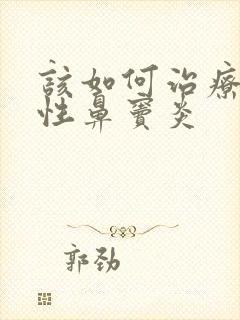 该如何治療
性鼻竇炎
郭劲